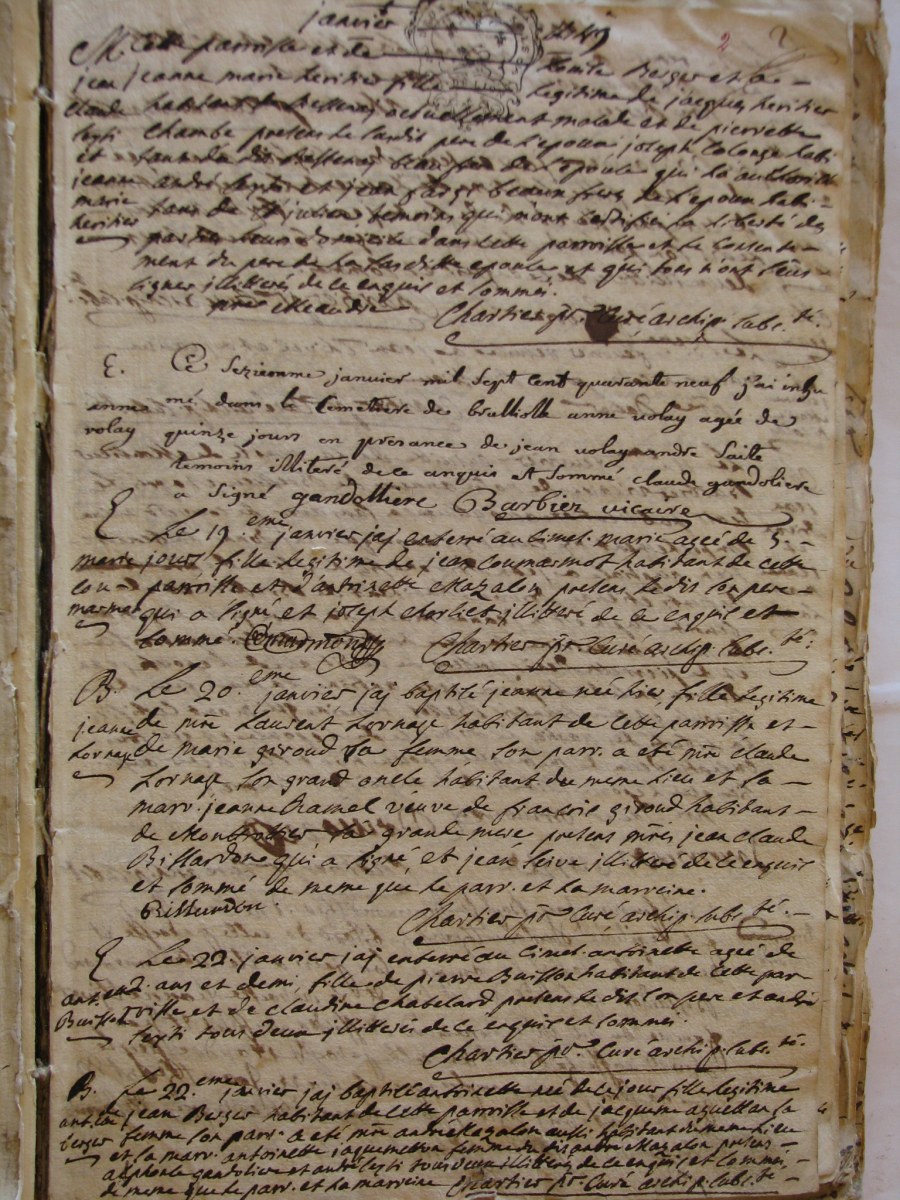 janvier 1749
M. cette parroisse et de Komite Berger et la
jean jeanne marie heritier fille legitime de jacques heritier
claude habitant de Bessenay actuellement malade et de pierrette
seyti Chambe presens le susdit pere de l'epoux joseph Colonge habi
et tant du dit Bessenay de l'epouse qui l'a authorisé
jeanne andré seyti et jean beaux freres de l'epoux habi
marie tans de St julien temoins qui m'ont certifié la liberté des
heritier parties leurs domicile dans cette parroisse et le consente
ment du pere de la susditte epouse et qui tous n'ont sceus
signer illitterés de ce enquis et sommés.
Chartier pr. Curé archip. subs.té
E. Ce sezieomme janvier mil sept cent quarante neuf j'ai inhu
anne mé dans le cemettiere de brulliolle anne volay agée de
volay quinze jours en presance de jean volay andre saite
temoins illiteré de ce anquis et sommé claude gandoliere
a signé gandolliere Barbier vicaire
E Le 19.eme janvier jaj enterré au cimet. marie agée de 5.
marie jours fille legitime de jean coumarmot habitant de cette
cou- parroisse et d'antoinette Mazalon presens le dit son pere
marmot qui a signé et joseph Morliet illitteré de ce enquis et
sommé. Chartier pr. Curé archip. subs.té
B. Le 20.eme janvier jaj baptisé jeanne née hier, fille legitime
jeanne de mre Laurent Lornage habitant de cette parroisse et
Lornage de marie giroud sa femme son parr. a eté mre claude
Lornage son grand oncle habitant du meme lieu et la
marr. jeanne Chamel veuve de françois giroud habitant
de Montrottier sa grande mere presens mres jean claude
Bissardon qui a signé, et jean seive illitteré de ce enquis
et sommé de meme que le parr. et la marreine.
Bissardon. Chartier pr. Curé archip. subs.té
E Le 22. janvier jaj enterré au Cimet. antoinette agée de
ant. ans et demi, fille de pierre Buisson habitant de cette par
Buisson roisse et de claudine Chatelard presens le dit son pere et andré
seyti tous deux illitterés de ce enquis et sommés.
Chartier pr. Curé archip. subs.té
B. Le 22.eme janvier jaj baptisé antoinette née de ce jour fille legitime
ant.tte de jean Berger habitant de cette parroisse et de jacqueme sa
berger femme son parr. a eté mre andré Mazalon aussi habitant du meme lieu
et la marr. antoinette jaquemetton femme du dit andré Mazalon presens
alphonse gandoliere et andré seyti tous deux illitterés de ce enquis et sommés,
de meme que le parr. et la marreine Chartier pr. Curé archip. subs.té